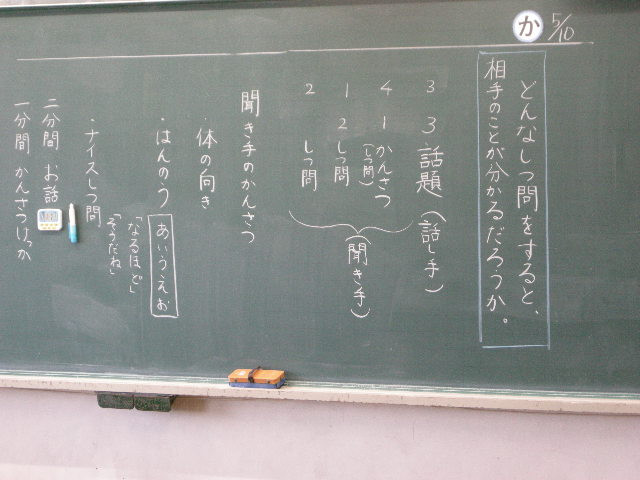 5/10
か
どんなしつ問をすると、
相手のことが分かるだろうか。
3 3 話題(話し手)
4 1 かんさつ
(しつ問)
1 2 しつ問
2 しつ問
(聞き手)
聞き手のかんさつ
・体の向き
・はんのう あいうえお
「なるほど」
「そうだね」
・ナイスしつ問
二分間 お話
一分間 かんさつけっか